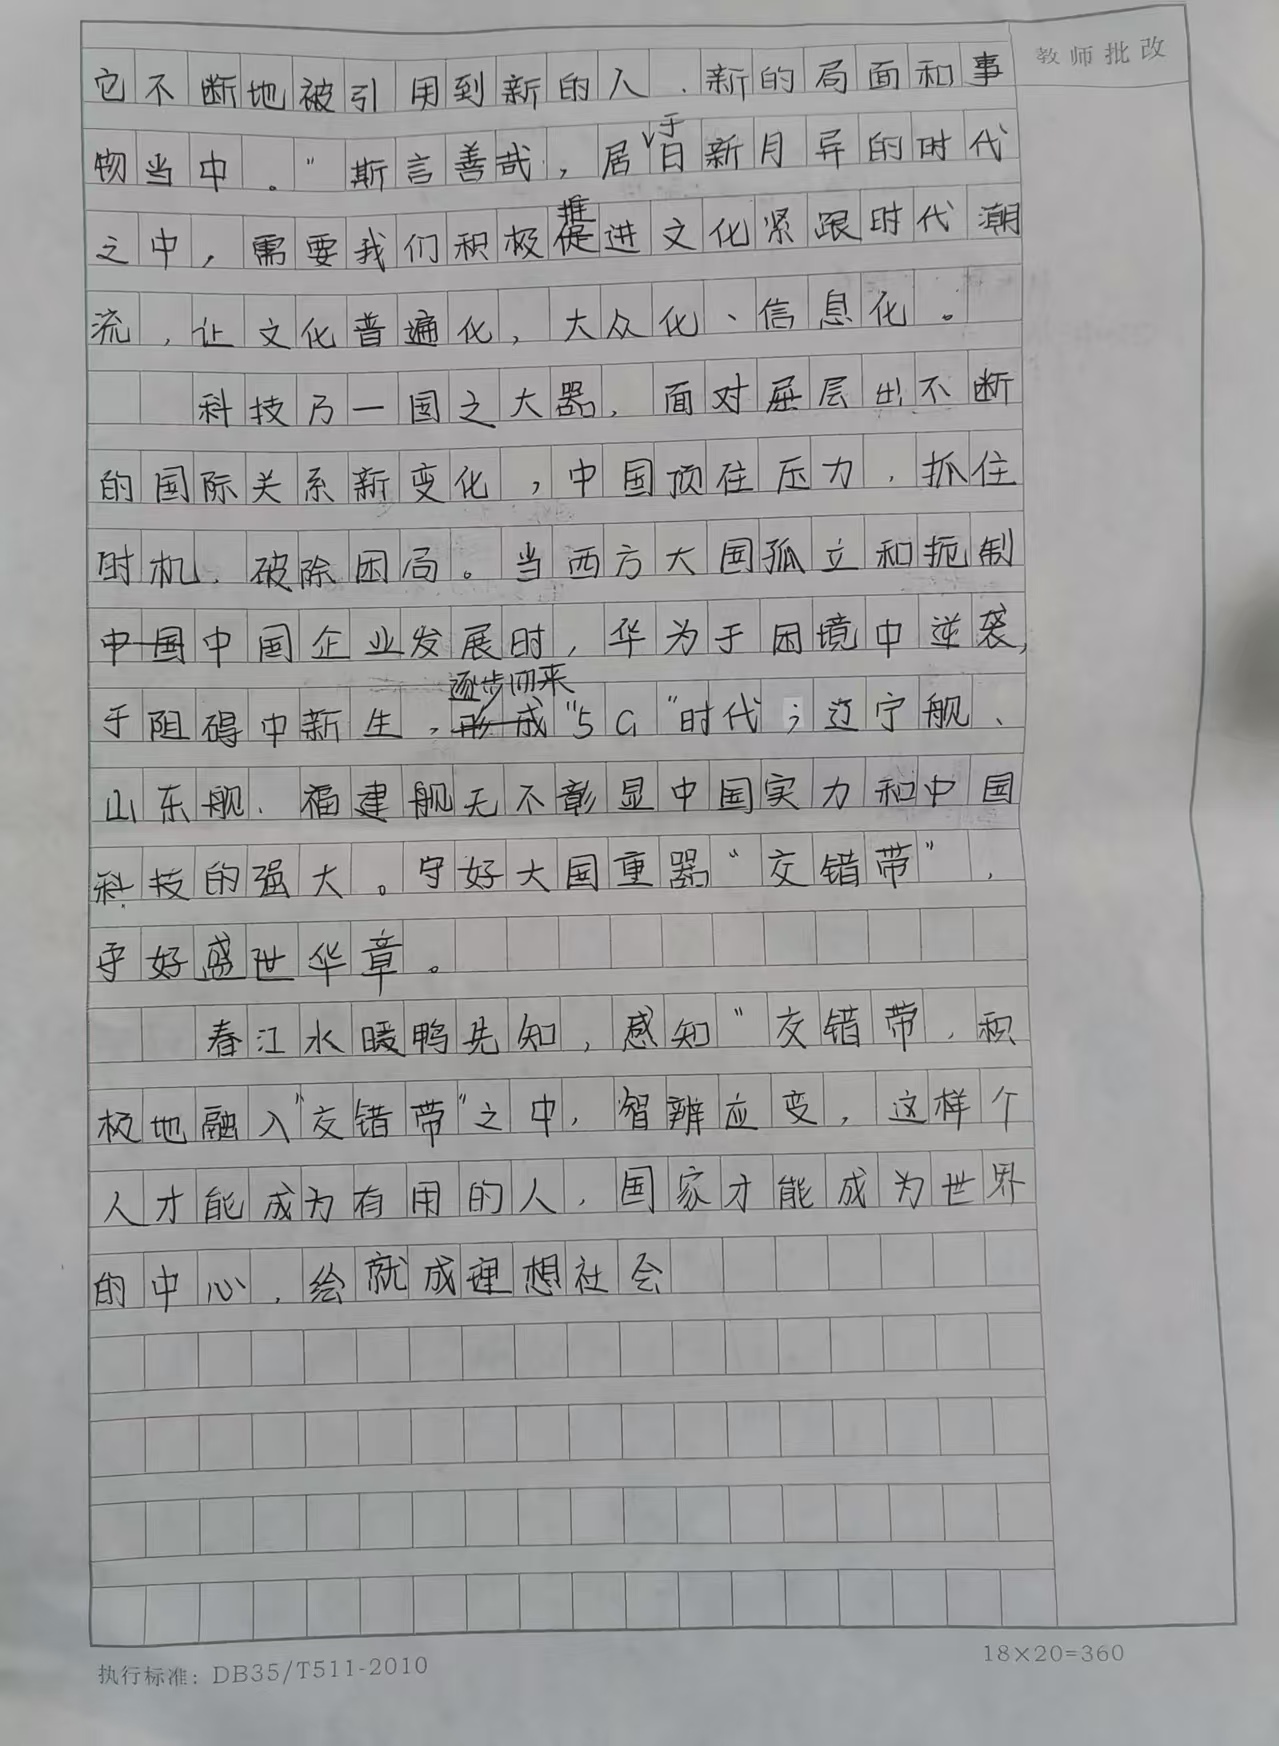 教师批改
它不断地被引用到新的人、新的局面和事
物当中。"斯言善哉，居于日新月异的时代
之中，需要我们积极推进文化紧跟时代潮
流，让文化普遍化，大众化、信息化。
科技乃一国之大器，面对屉层出不断
的国际关系新变化，中国顶住压力，抓住
时机，破除困局。当西方大国孤立和扼制
中国企业发展时，华为于困境中逆袭，
于阻碍中新生，逐步迎来"5G"时代；辽宁舰、
山东舰、福建舰无不彰显中国实力和中国
科技的强大。守好大国重器"交错带"，
乎好盛世华章。
春江水暖鸭先知，感知"交错带，积
极地融入"交错带"之中，智辨应变，这样个
人才能成为有用的人，国家才能成为世界
的中心，绘就成理想社会
执行标准：DB35/T511-2010
18×20=360